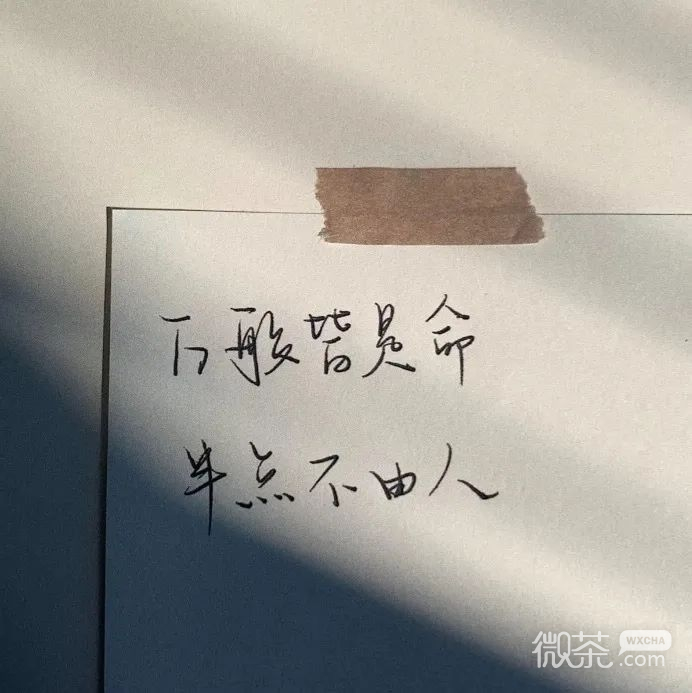 万般皆是命
半点不由人
微茶 WXCHA
.com